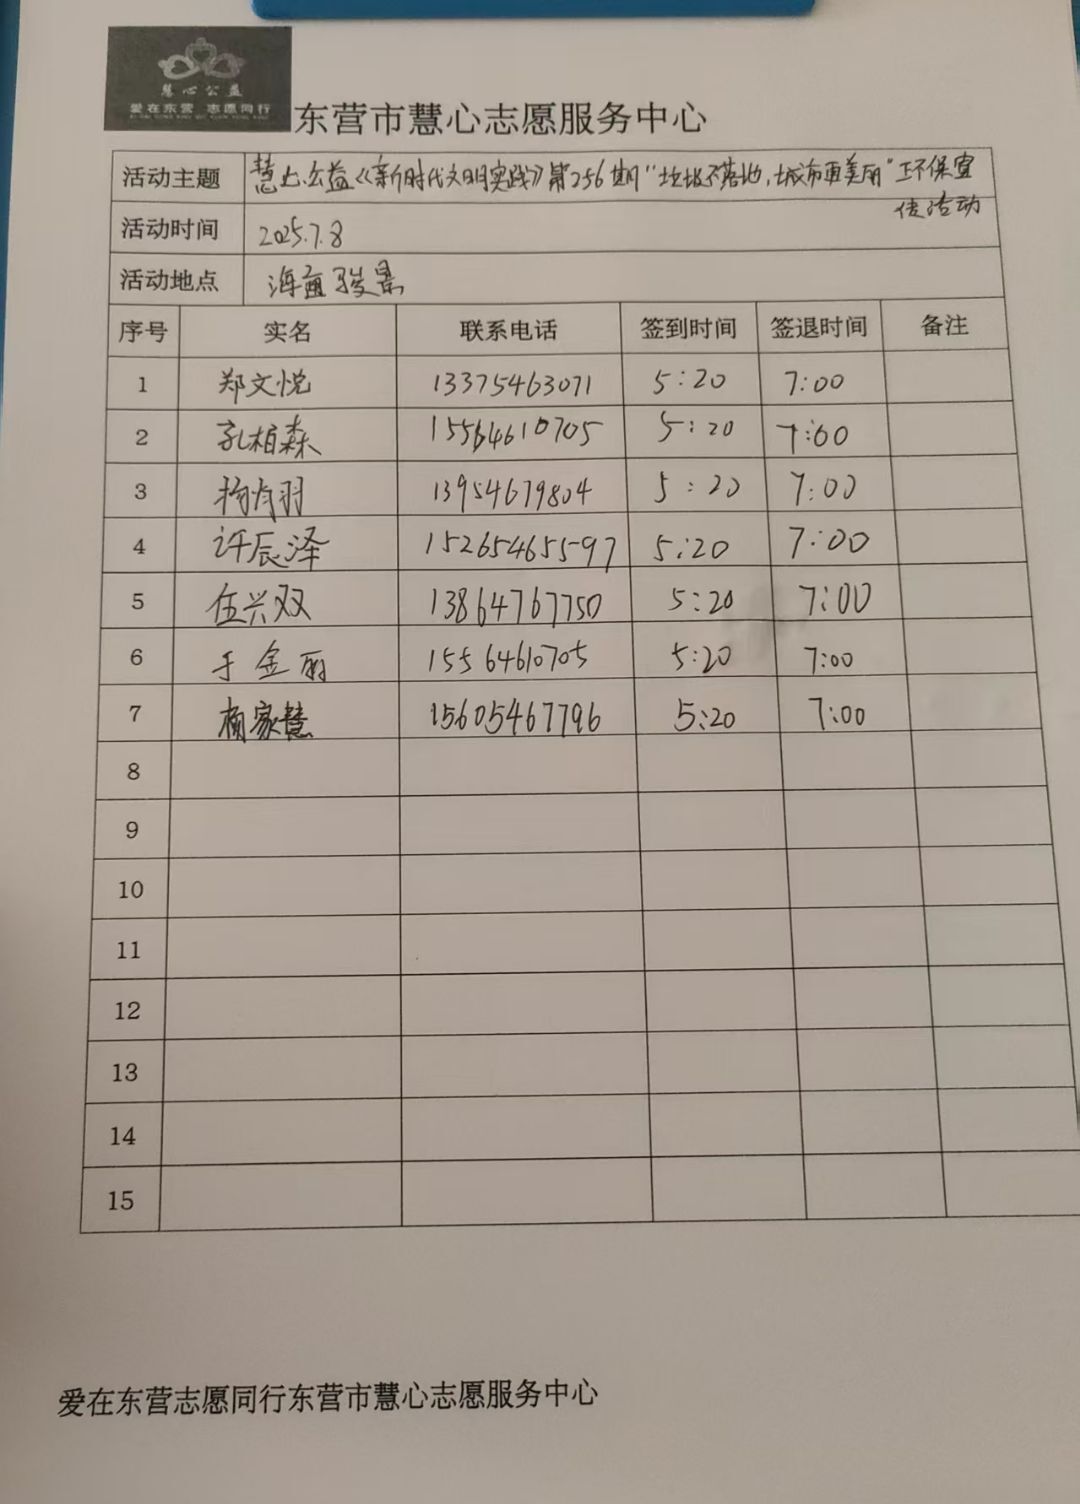 慧心公益
爱在东营 志愿同行
东营市慧心志愿服务中心
活动主题 慧心公益《新时代文明实践》第256期"垃圾不落地,城市更美丽"环保宣
传活动
活动时间 2025.7.8
活动地点 海通骏景
序号 实名 联系电话 签到时间 签退时间 备注
1 郑文悦 13375463071 5:20 7:00
2 孔柏森 15564610705 5:20 7:00
3 13954679804 5:20 7:00
4 许辰泽 15265465597 5:20 7:00
5 伍兴双 13864767750 5:20 7:00
6 于金丽 15564610705 5:20 7:00
7 杨家慧 15605467796 5:20 7:00
8
9
10
11
12
13
14
15
爱在东营志愿同行东营市慧心志愿服务中心